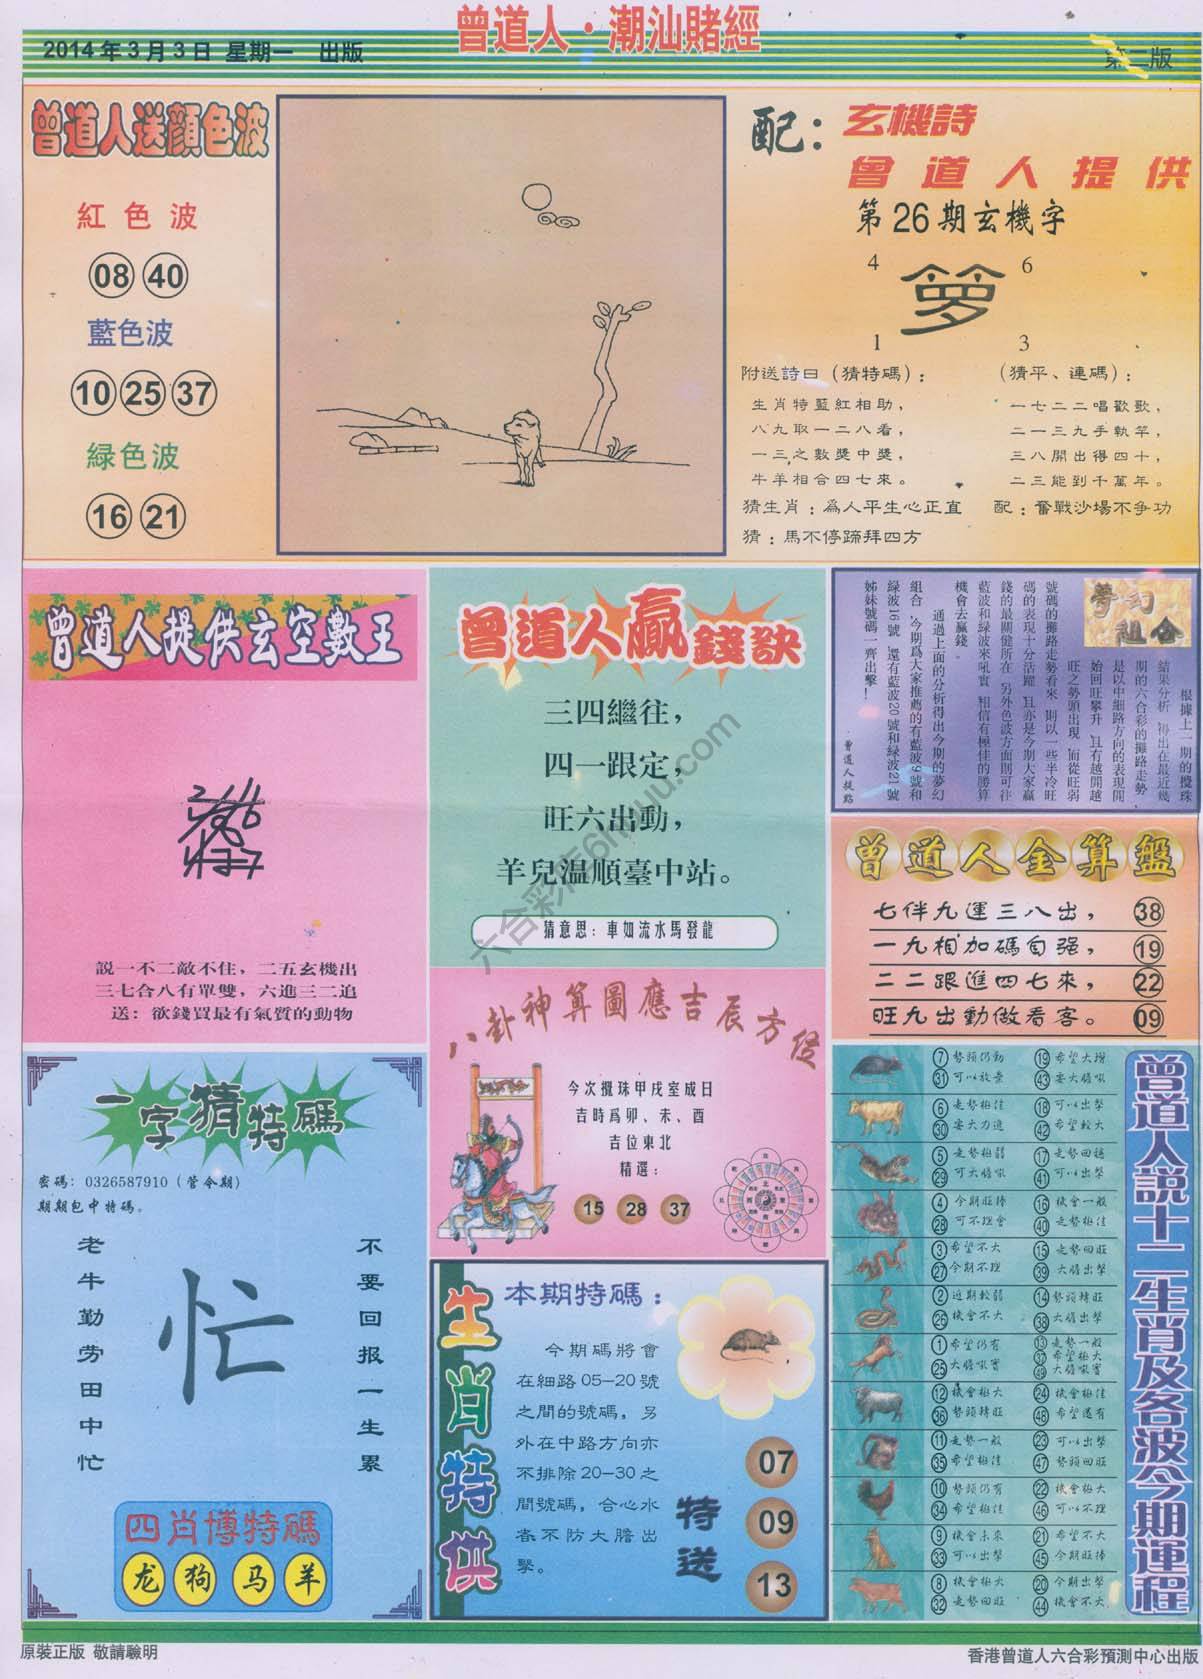 曾道人·潮汕賭經
2014年3月3日 星期一 出版
第二版
曾道人送顔色波
紅色波
08 40
藍色波
10 25 37
緑色波
16 21
配：
玄機詩
曾道人提供
第26期玄機字
4 6
1 3
附送詩曰（猜特碼）：
生肖特藍紅相助，
八九取一二八看，
一三之數獎中獎，
牛羊相合四七來。
（猜平、連碼）：
一七二二唱歡歌，
二一三九手執竿，
三八開出得四十，
二三能到千萬年。
猜生肖：爲人平生心正直
配：奮戰沙場不争功
猜：馬不停蹄拜四方
曾道人提供玄空數王
説一不二敵不住，二五玄機出
三七合八有單雙，六進三二追
送：欲錢買最有氣質的動物
曾道人贏錢訣
三四繼往，
四一跟定，
旺六出動，
羊兒温順臺中站。
猜意思：車如流水馬發龍
夢幻組合
根據上一期的攪珠
結果分析，得出在最近幾
期的六合彩的攤路走勢，
是以中細路方向的表現開
始回旺攀升，且有越開越
旺之勢頭出現，而從旺弱
號碼的攤路走勢看來，則以一些半冷旺
碼的表現十分活躍，且亦是今期大家贏
錢的最關健所在，另外色波方面則可往
藍波和緑波來吼實，相信有極佳的勝算
機會去贏錢。
通過上面的分析得出今期的夢幻
組合，今期爲大家推薦的有藍波9號和
緑波16號，還有藍波20號和緑波21號
姊妹號碼一齊出擊！
曾道人提點
曾道人金算盤
七伴九運三八出， 38
一九相加碼自强， 19
二二跟進四七來， 22
旺九出動做看客。 09
八卦神算圖應吉辰方位
今次攪珠甲戌室成日
吉時爲卯、未、酉
吉位東北
精選：
15 28 37
一字猜特碼
密碼：0326587910（管令期）
期期包中特碼。
老牛勤劳田中忙
忙
不要回报一生累
四肖博特碼
龙 狗 马 羊
生肖特供
本期特碼：
今期碼將會
在細路05-20號
之間的號碼，另
外在中路方向亦
不排除20-30之
間號碼，合心水
者不防大膽出
擊。
特送
07
09
13
曾道人説十二生肖及各波今期運程
7 勢頭仍動 19 希望大增
31 可以放棄 43 要大膽吼
6 走勢極佳 18 可以出擊
30 要大力追 42 希望較大
5 走勢極弱 17 走勢回穩
29 可大膽吼 41 可以出擊
4 今期旺捧 16 機會一般
28 可不理會 40 走勢極佳
3 希望不大 15 走勢回旺
27 今期不理 39 大膽出擊
2 近期較弱 14 勢頭轉旺
26 機會不大 38 大膽出擊
1 希望仍有 13 走勢一般
25 大膽吼實 37 希望極大
49 大膽吼實
12 機會極大 24 機會極佳
36 勢頭轉旺 48 希望還有
11 走勢一般 23 可以出擊
35 希望極佳 47 勢頭回旺
10 勢頭仍有 22 機會極大
34 希望極佳 46 可以不理
9 機會未來 21 希望不大
33 可以出擊 45 今期旺捧
8 機會極大 20 今期出擊
32 走勢回旺 44 機會不大
六合彩库6hkuu.com
原裝正版 敬請驗明
香港曾道人六合彩預測中心出版